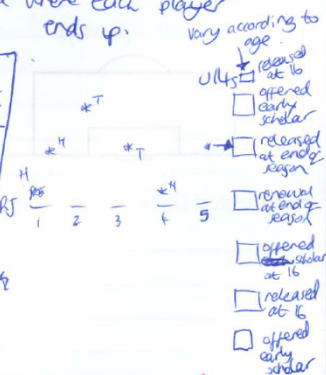 where each player
ends up.
vary according to
age.
U14s
released
at 16
offered
early
scholar
* T
* H
* T
*
released
at end of
season
H
* H
1 2 3 4 5
renewal
at end of
season
offered
scholar
at 16
released
at 16
offered
early
scholar